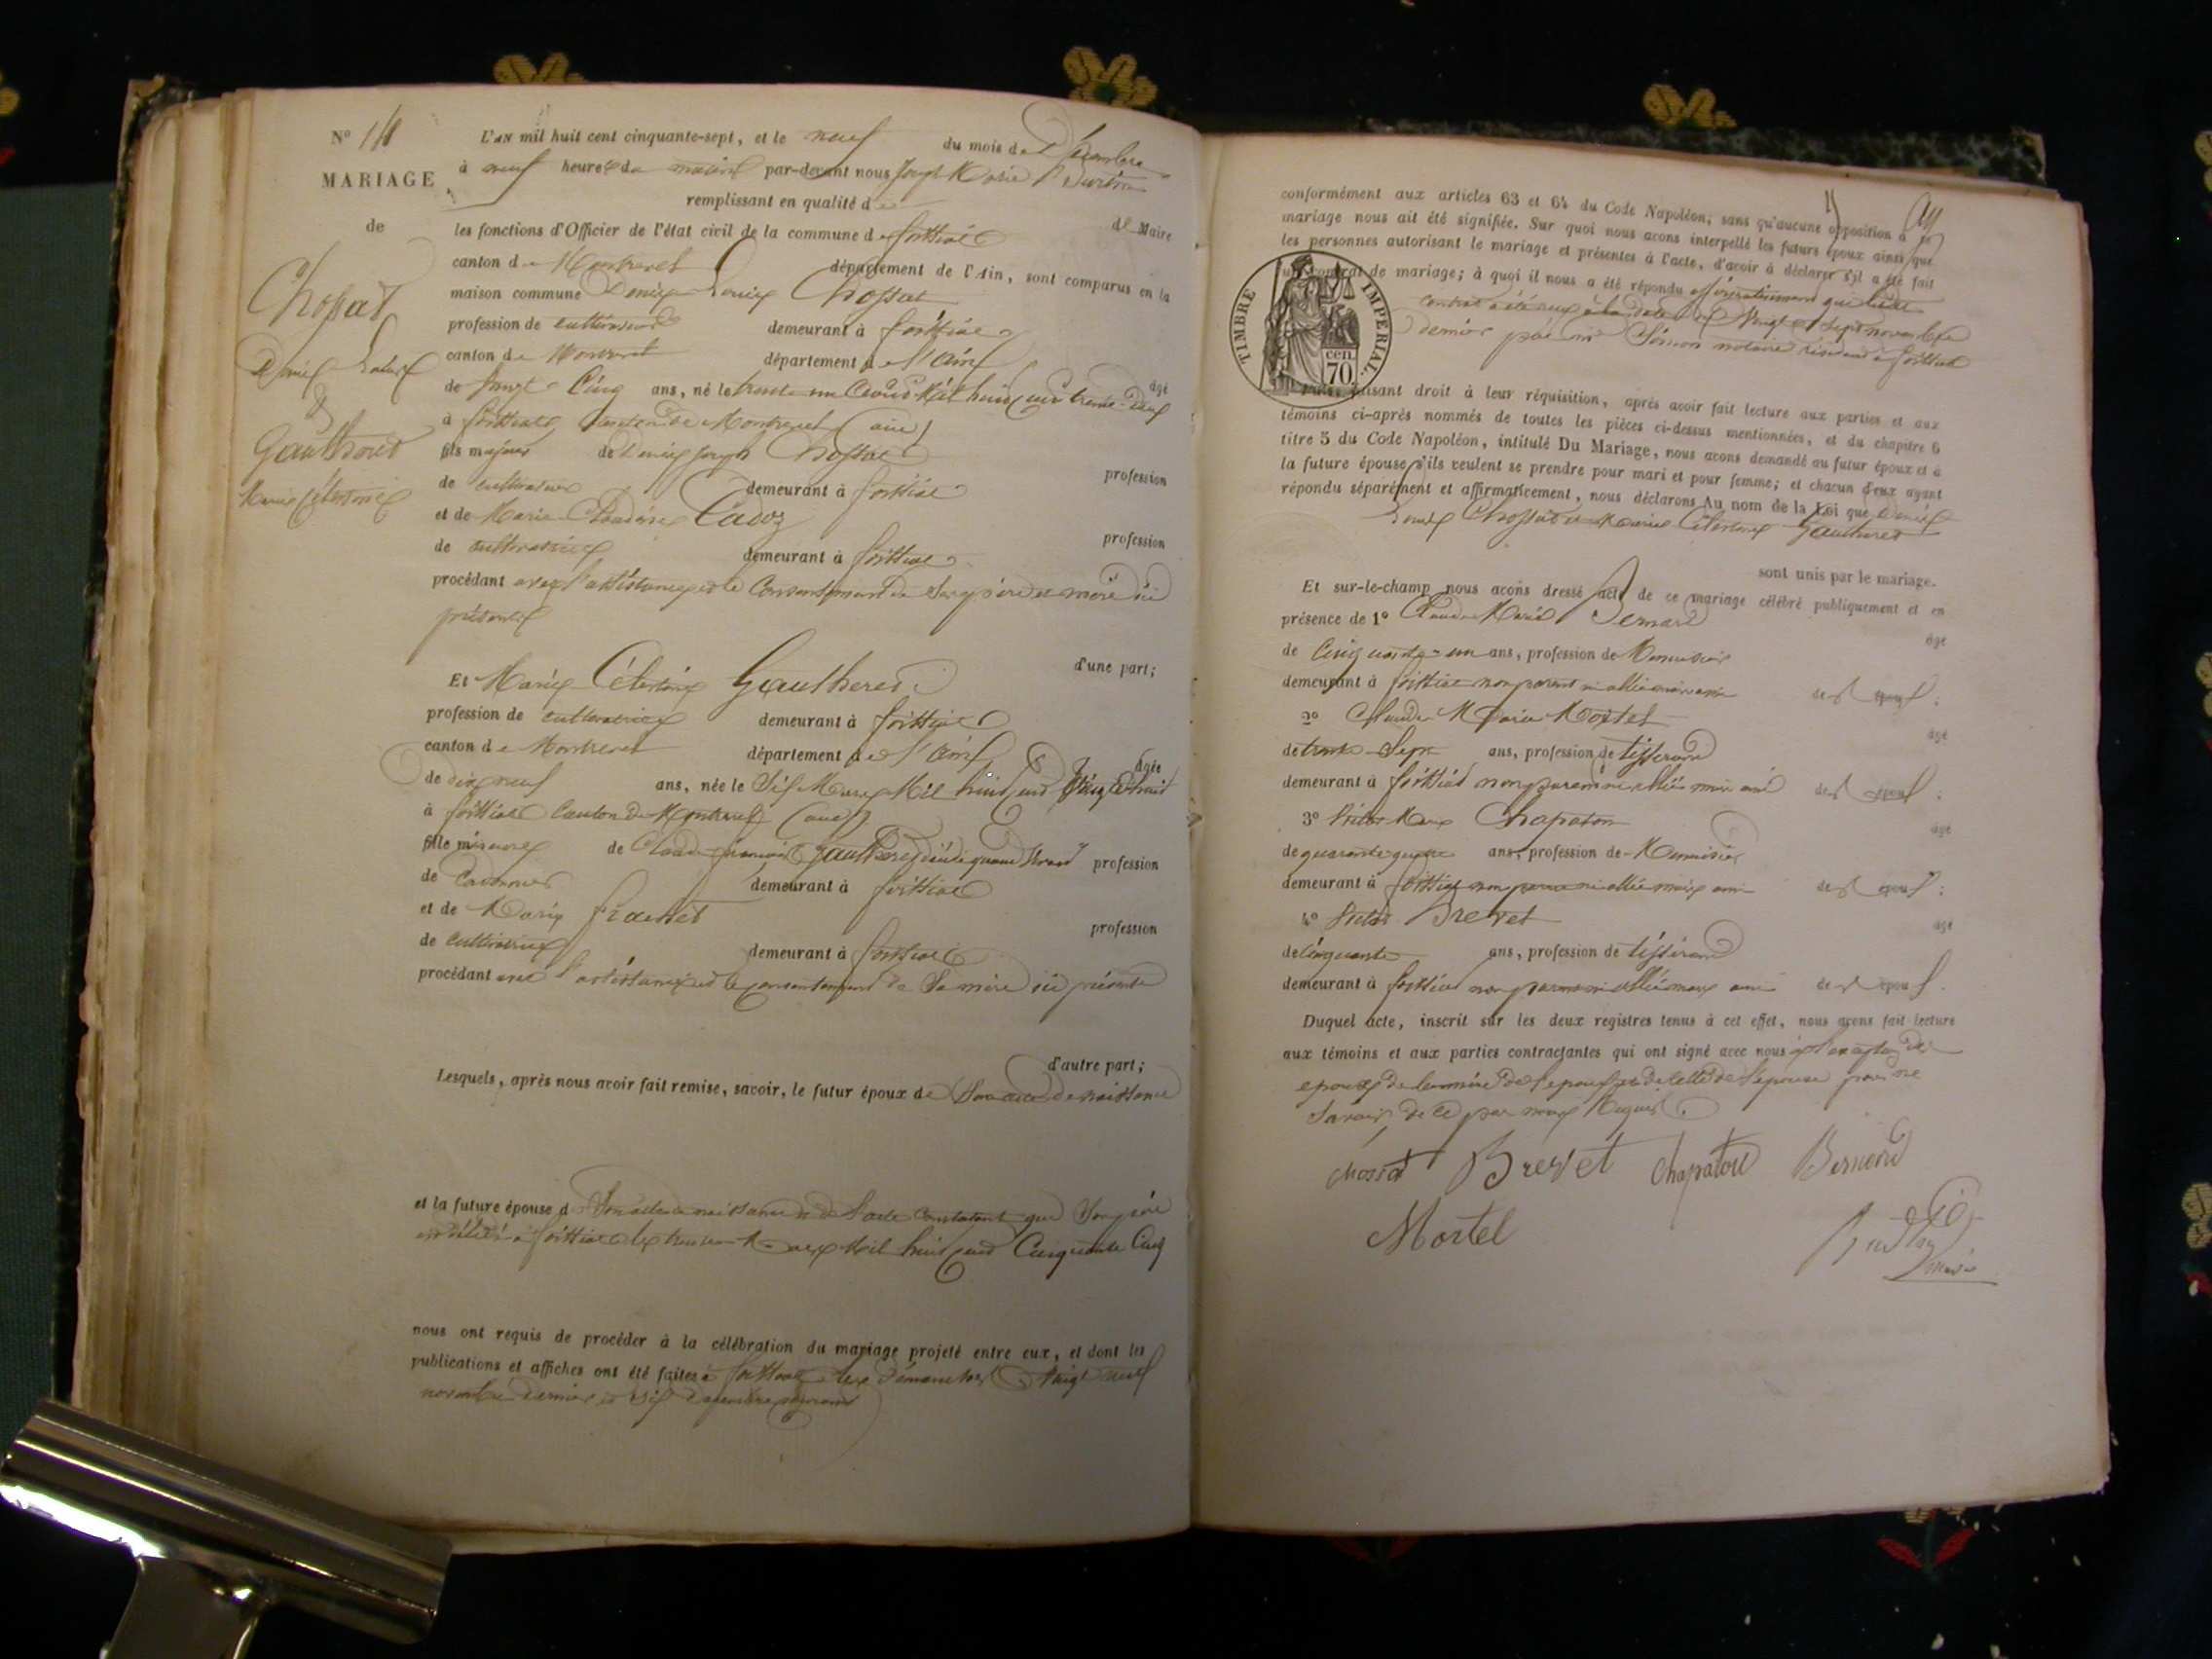 N° 18
MARIAGE
de
Chossat
Denis Louis
&
Gautheret
Marie Célestine
L'AN mil huit cent cinquante-sept, et le neuf du mois de Décembre
à neuf heures du matin par-devant nous Joseph Marie
remplissant en qualité de Maire
les fonctions d'Officier de l'état civil de la commune de foissiat
canton de Montrevel département de l'Ain, sont comparus en la
maison commune Denis Louis Chossat
profession de cultivateur demeurant à foissiat
canton de Montrevel département de l'ain âgé
de vingt Cinq ans, né le trente un août Mil huit cent trente deux
à foissiat canton de Montrevel (ain)
fils majeur de Denis Joseph Chossat profession
de cultivateur demeurant à foissiat
et de Marie Claudine Cadoz profession
de cultivatrice demeurant à foissiat
procédant avec l'assistance et le Consentement de Ses père et mère ici
présents
d'une part;
Et Marie Célestine Gautheret
profession de cultivatrice demeurant à foissiat
canton de Montrevel département de l'ain âgée
de dix neuf ans, née le Six Mars Mil huit cent trente huit
à foissiat Canton de Montrevel (ain)
fille mineure de Claude françois Gautheret décédé quand vivant profession
de demeurant à foissiat
et de Marie profession
de cultivatrice demeurant à foissiat
procédant avec l'assistance et le consentement de Sa mère ici présente
d'autre part;
Lesquels, après nous avoir fait remise, savoir, le futur époux de Son acte de naissance
et la future épouse de Son acte de naissance et de l'acte constatant que Son père
est décédé à foissiat le Mars Mil huit cent Cinquante Cinq
nous ont requis de procéder à la célébration du mariage projeté entre eux, et dont les
publications et affiches ont été faites à foissiat les Dimanches Vingt neuf
novembre dernier et Six Décembre courant
conformément aux articles 63 et 64 du Code Napoléon; sans qu'aucune opposition à ce
mariage nous ait été signifiée. Sur quoi nous avons interpellé les futurs époux ainsi que
les personnes autorisant le mariage et présentes à l'acte, d'avoir à déclarer s'il a été fait
un contrat de mariage; à quoi il nous a été répondu affirmativement que ledit
contrat a été reçu à la date du Vingt Sept novembre
dernier par me notaire résidant à foissiat
TIMBRE IMPERIAL.
70 cen.
Puis, faisant droit à leur réquisition, après avoir fait lecture aux parties et aux
témoins ci-après nommés de toutes les pièces ci-dessus mentionnées, et du chapitre 6
titre 5 du Code Napoléon, intitulé Du Mariage, nous avons demandé au futur époux et à
la future épouse s'ils veulent se prendre pour mari et pour femme; et chacun d'eux ayant
répondu séparément et affirmativement, nous déclarons Au nom de la Loi que Denis
Louis Chossat et Marie Célestine Gautheret
sont unis par le mariage.
Et sur-le-champ nous avons dressé acte de ce mariage célébré publiquement et en
présence de 1° Claude Marie Bernard âgé
de Cinquante-un ans, profession de Menuisier
demeurant à foissiat non parent ni allié mais ami de l'époux;
2° Claude Marie Mortel âgé
de trente-Sept ans, profession de tisserand
demeurant à foissiat non parent ni allié mais ami de l'époux;
3° Chapaton âgé
de quarante quatre ans, profession de Menuisier
demeurant à foissiat non parent ni allié mais ami de l'époux;
4° Brevet âgé
de Cinquante ans, profession de tisserand
demeurant à foissiat non parent ni allié mais ami de l'époux.
Duquel acte, inscrit sur les deux registres tenus à cet effet, nous avons fait lecture
aux témoins et aux parties contractantes qui ont signé avec nous à l'exception des
époux de la mère de l'époux et de celle de l'épouse pour ne
Savoir de ce par nous Requis
Chossat Brevet Chapaton Bernard
Mortel
maire